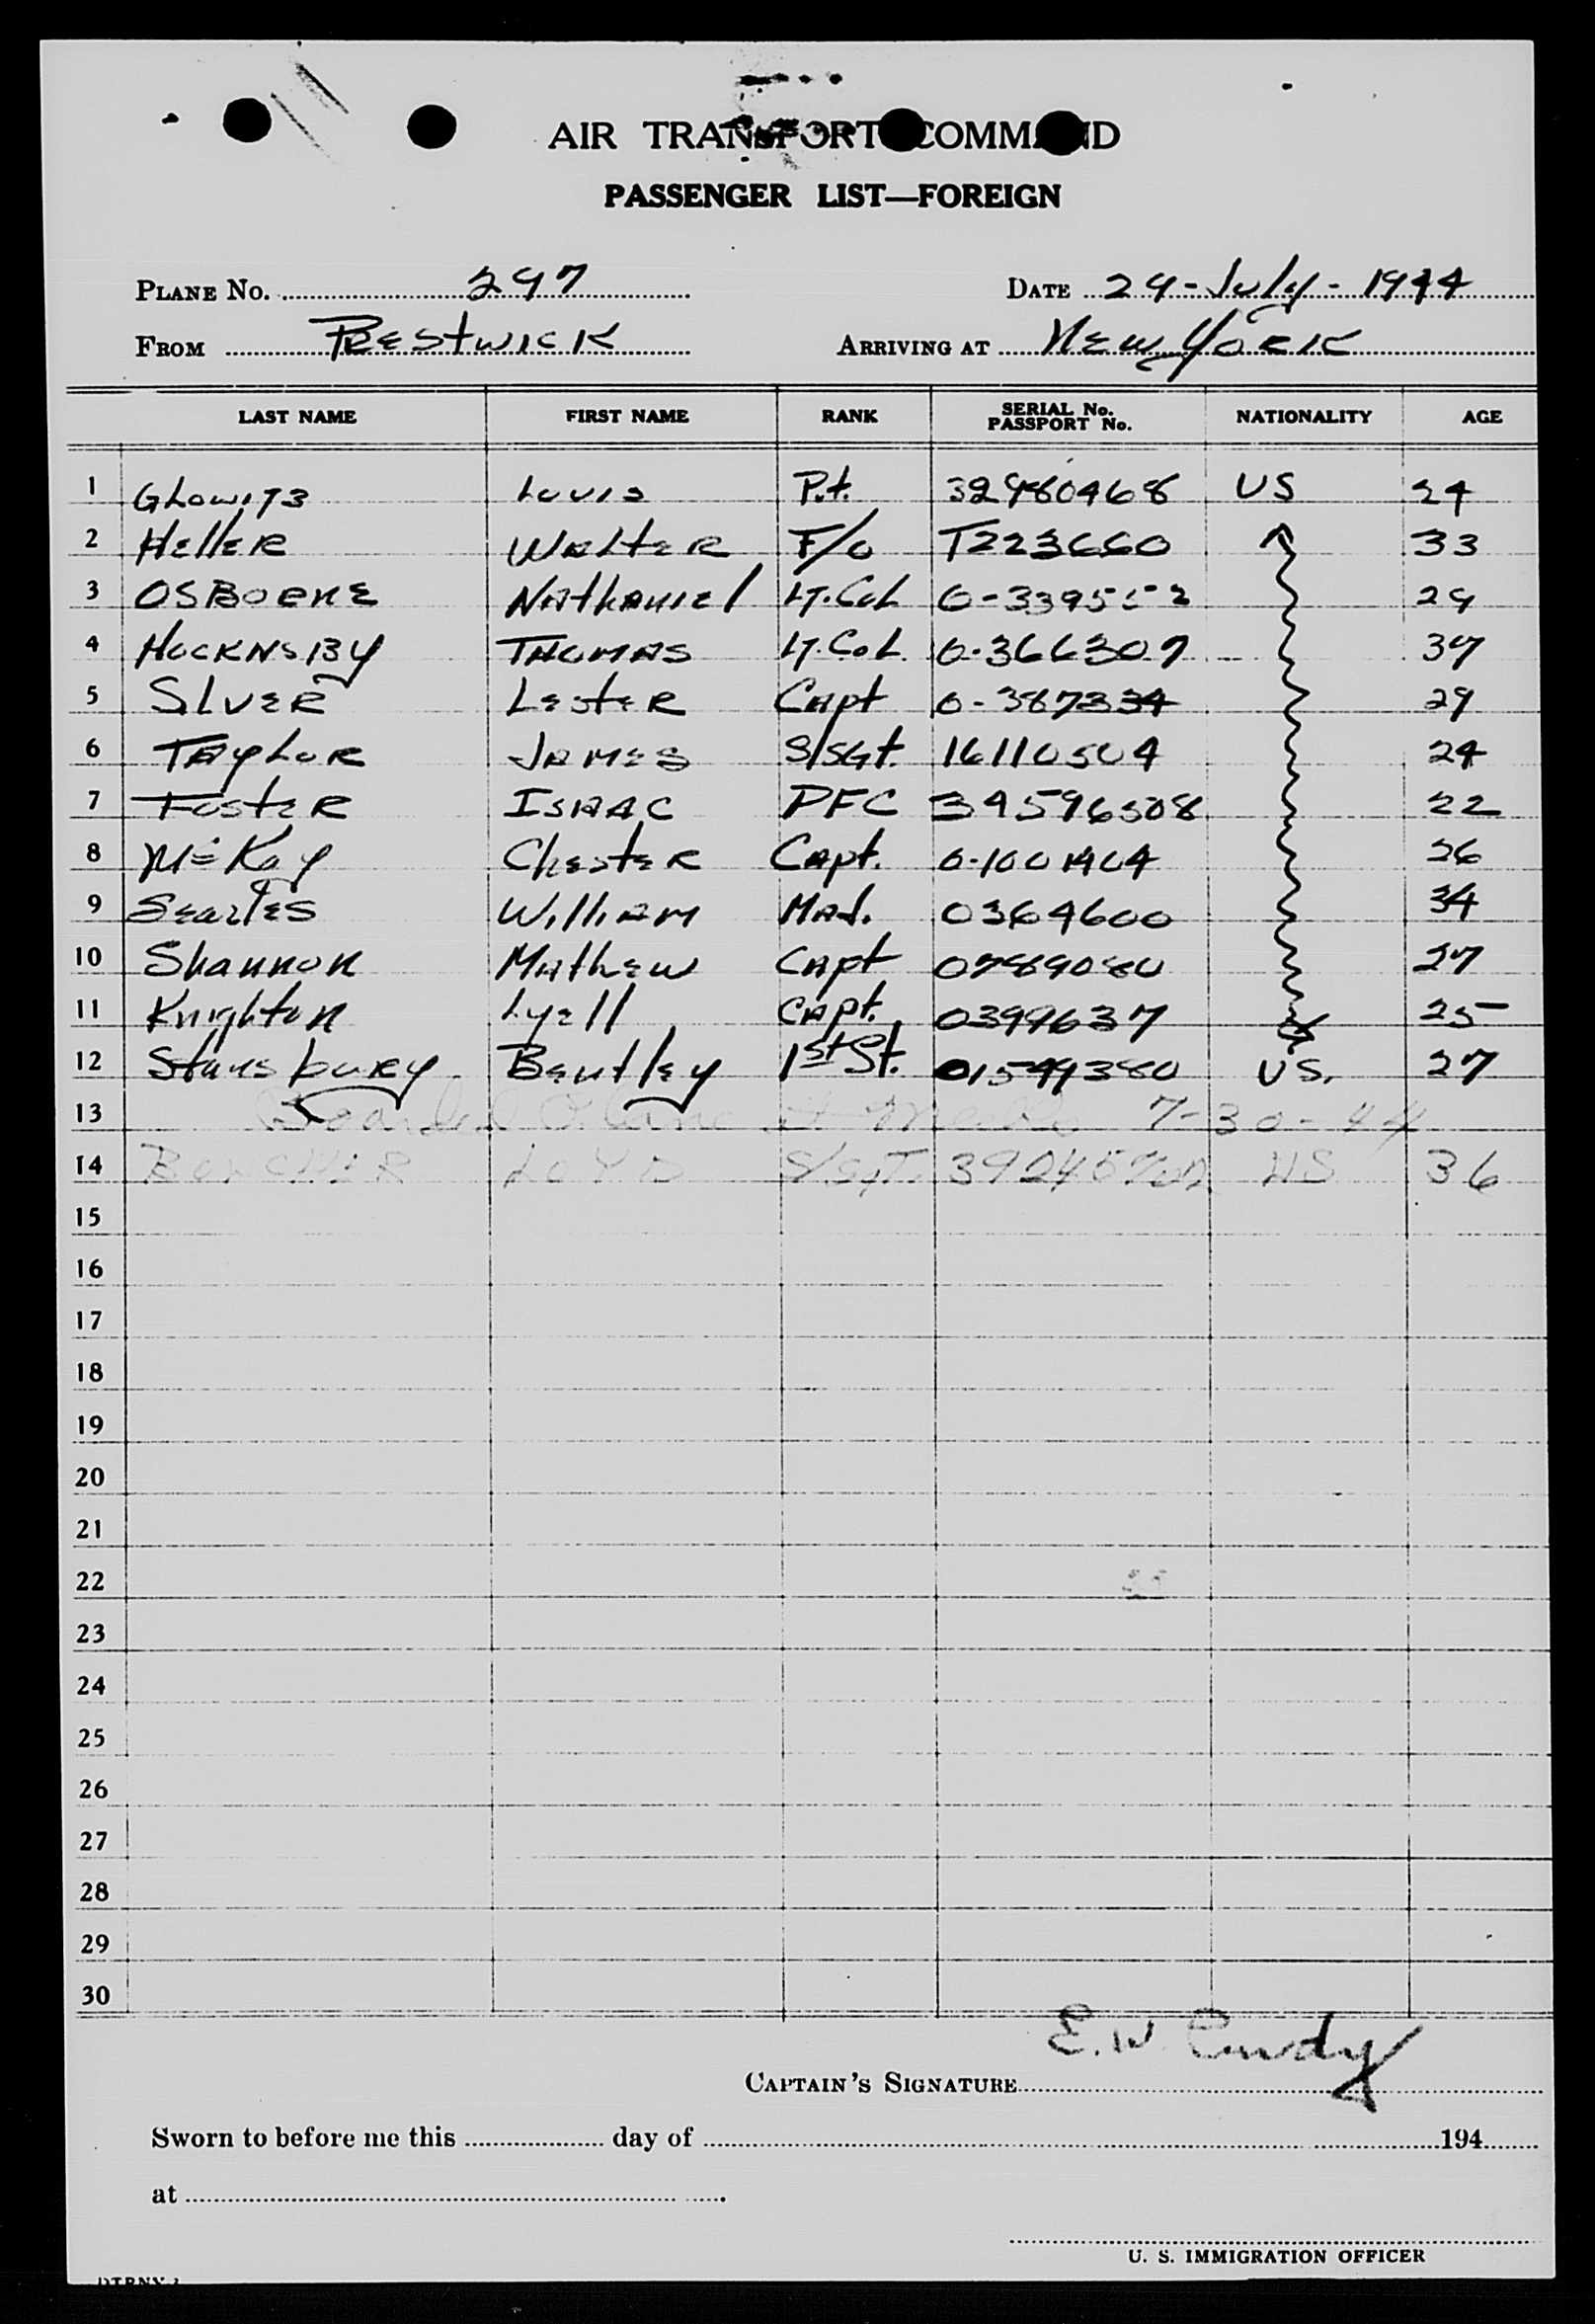 AIR TRANSPORT COMMAND
PASSENGER LIST—FOREIGN
PLANE No. 297 DATE 29-July-1944
FROM PRESTWICK ARRIVING AT NEW YORK
LAST NAME FIRST NAME RANK SERIAL No. PASSPORT No. NATIONALITY AGE
1 GLowitz Louis Pvt. 32980468 US 24
2 HellER WALtER F/O T223660 33
3 OSBORNE NAthANiEl LT.Col 29
4 HOCKNSBY THOMAS LT.Col. 0-366307 37
5 SlVER LEstER CApt 0-387334 29
6 TAyLOR JAMES S/SGt. 16110504 24
7 FostER ISAAC PFC 39596508 22
8 McKay ChEstER CApt. 26
9 SEarlEs WilliAM MAJ. 0364600 34
10 Shannon MAthEw CApt 0789080 27
11 Knighton LyEll CApt. 0399637 25
12 StansburEy BEntlEy 1st 01549380 US. 27
13 Boarded Plane at 7-30-44
14 LOYD S/SgT. US 36
15
16
17
18
19
20
21
22
23
24
25
26
27
28
29
30
CAPTAIN'S SIGNATURE E.W.
Sworn to before me this day of 194
at
U. S. IMMIGRATION OFFICER